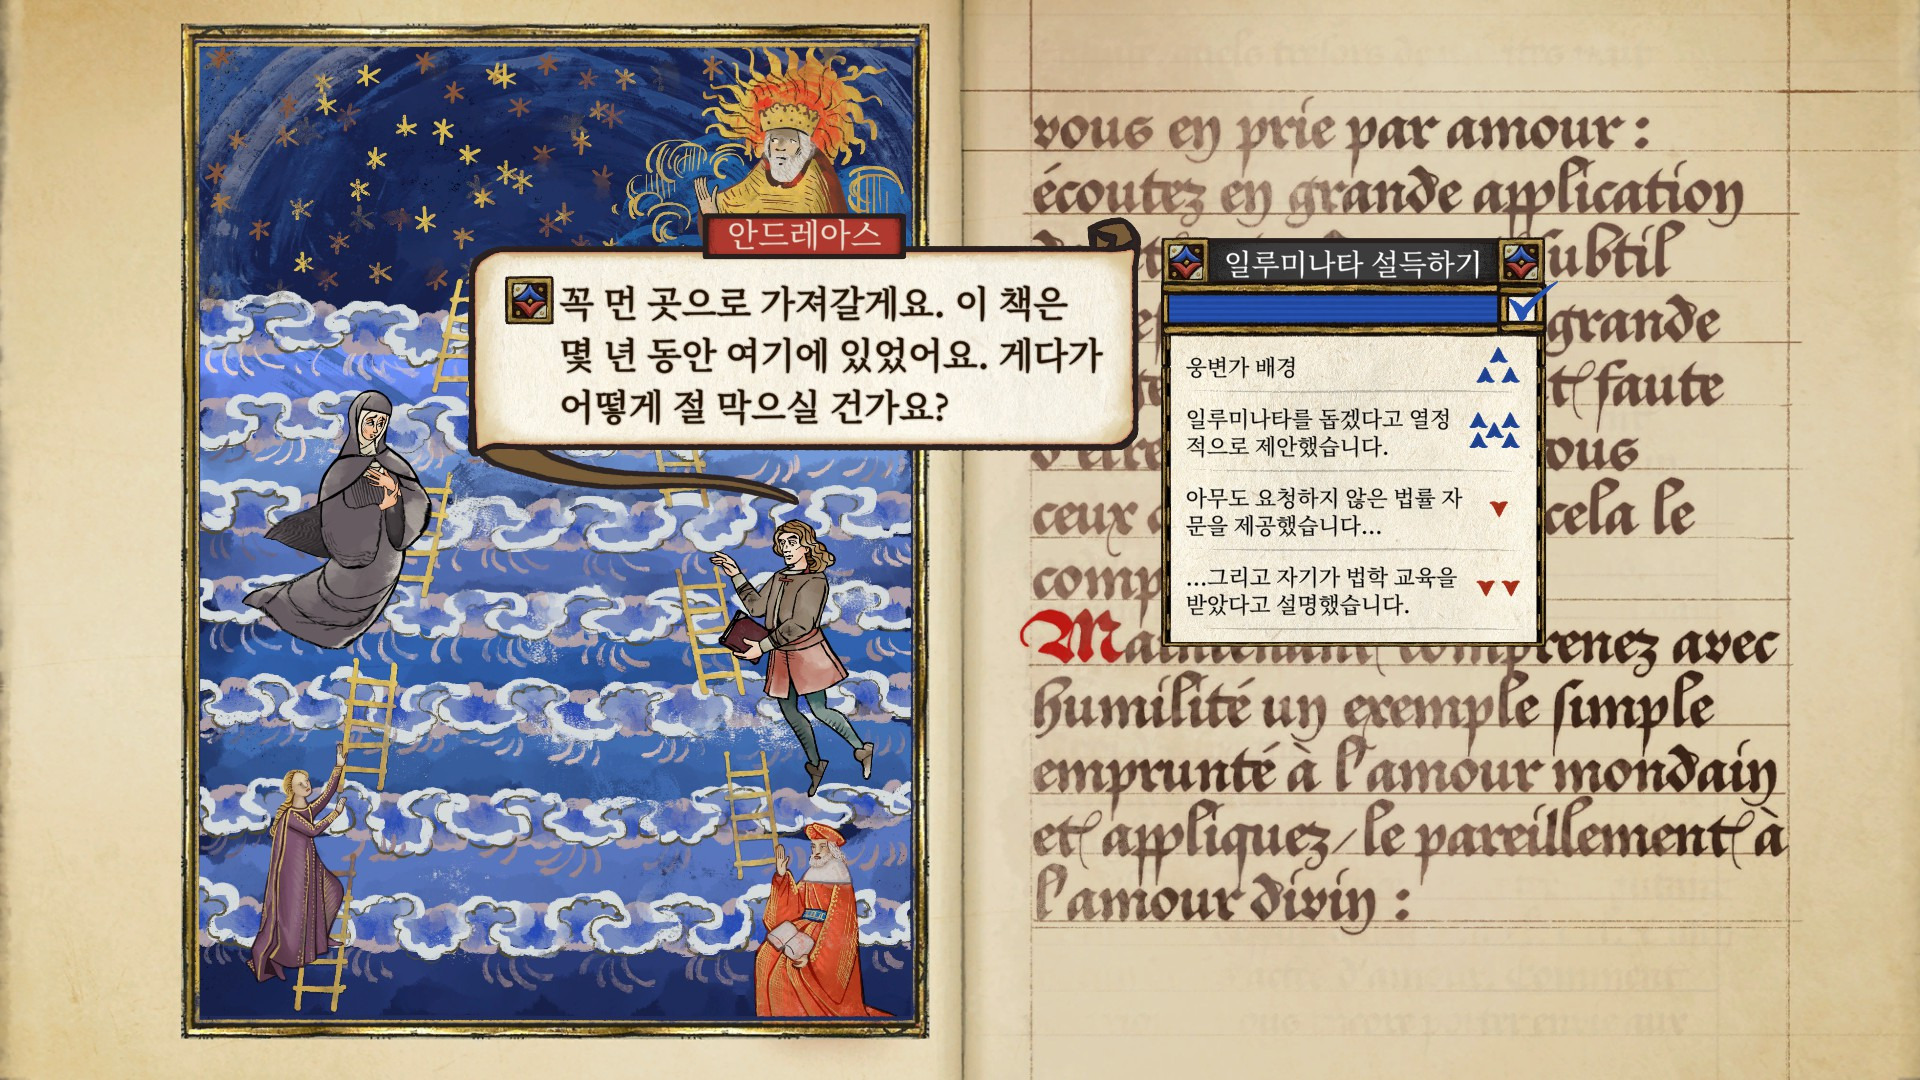 안드레아스
꼭 먼 곳으로 가져갈게요. 이 책은
몇 년 동안 여기에 있었어요. 게다가
어떻게 절 막으실 건가요?
일루미나타 설득하기
웅변가 배경
일루미나타를 돕겠다고 열정
적으로 제안했습니다.
아무도 요청하지 않은 법률 자
문을 제공했습니다...
...그리고 자기가 법학 교육을
받았다고 설명했습니다.
vous en prie par amour :
écoutez en grande application
subtil
grande
faute
ceux
cela le
avec
humilité un exemple simple
emprunté à l'amour mondain
et appliquez/le pareillement à
l'amour divin :